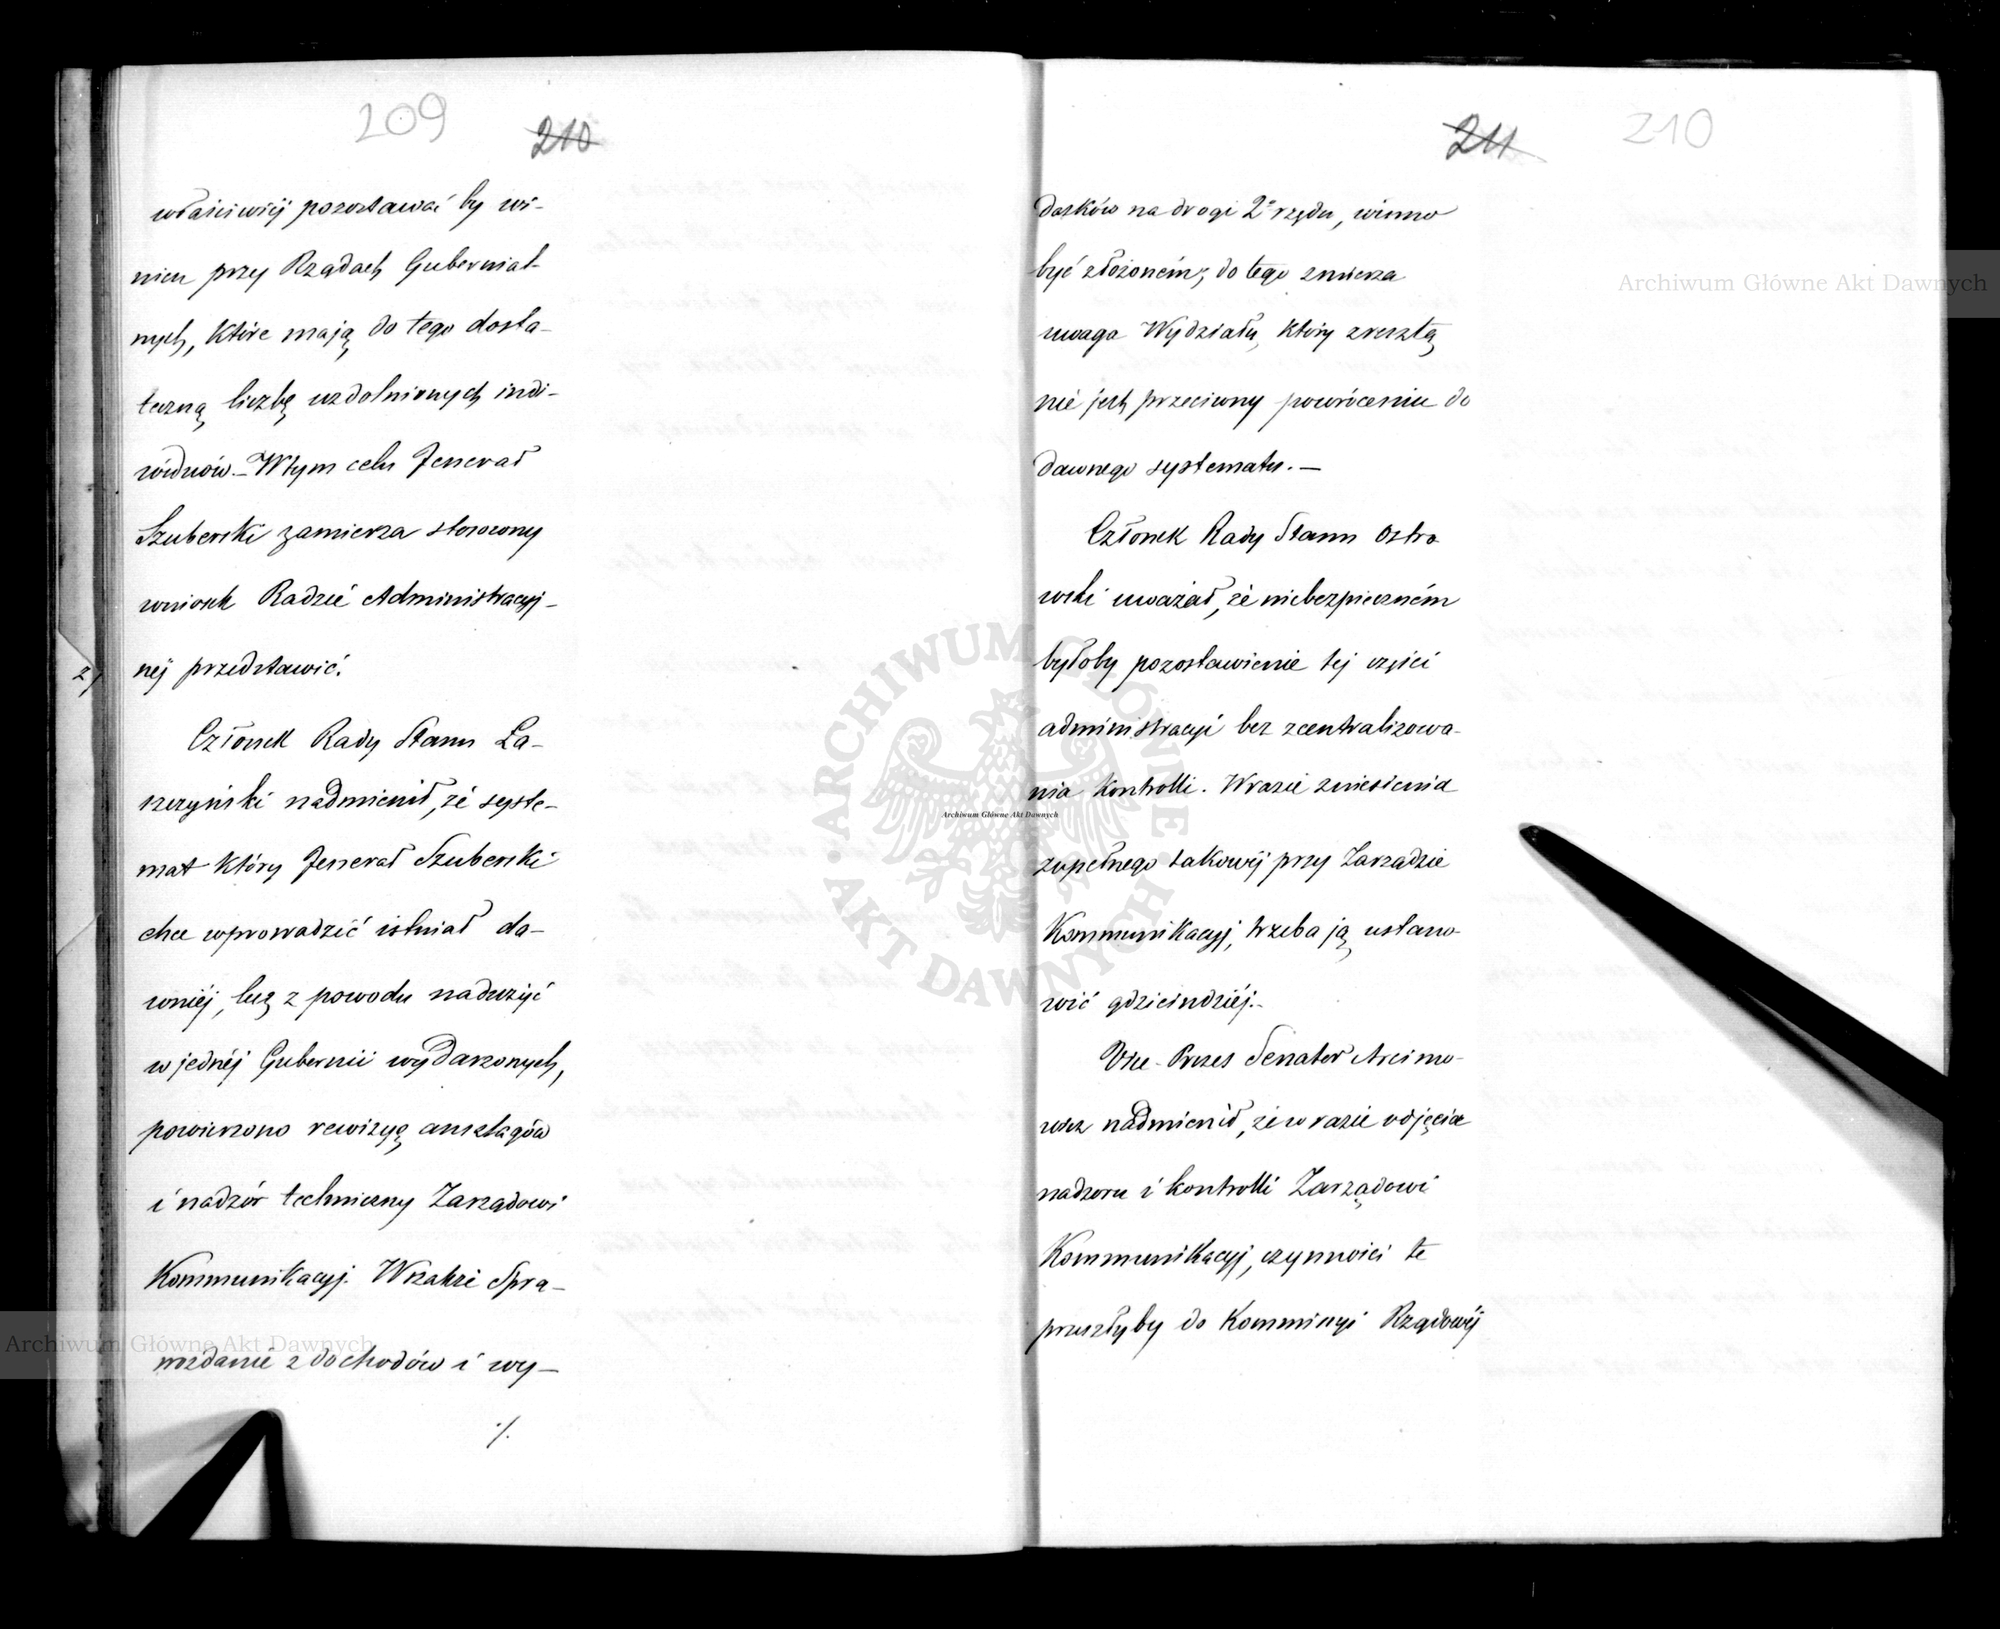 209
210
właściwiéj pozostawać by wi-
nien przy Rządach Gubernial-
nych, które mają do tego dosta-
teczną liczbę uzdolnionych indi-
widuów. – W tym celu Jenerał
Szuberski zamierza stosowny
wniosek Radzie Administracyj-
néj przedstawić.
Członek Rady Stanu Ła-
szczyński nadmienił, że syste-
mat który Jenerał Szuberski
chce wprowadzić istniał da-
wniéj, lecz z powodu nadużyć
w jednéj Gubernii wydarzonych,
powierzono rewizyę anszlagów
i nadzór techniczny Zarządowi
Kommunikacyj. Wszakże Spra-
wozdanie z dochodów i wy-
./.
211
210
datków na drogi 2º rzędu, winno
być złożoném; do tego zmierza
uwaga Wydziału, który zresztą
nie jest przeciwny powróceniu do
dawnego systematu. –
Członek Rady Stanu Ostro
wski uważał, że niebezpieczném
byłoby pozostawienie téj części
administracyi bez zcentralizowa-
nia kontrolli. W razie zniesienia
zupełnego takowéj przy Zarządzie
Kommunikacyj, trzeba ją ustano-
wić gdzieindziéj. –
Vice-Prezes Senator Arcimo-
wicz nadmienił, że w razie odjęcia
nadzoru i kontrolli Zarządowi
Kommunikacyj, czynności te
przeszłyby do Kommissyi Rządowéj
Archiwum Główne Akt Dawnych
Archiwum Główne Akt Dawnych
Archiwum Główne Akt Dawnych
ARCHIWUM GŁÓWNE AKT DAWNYCH